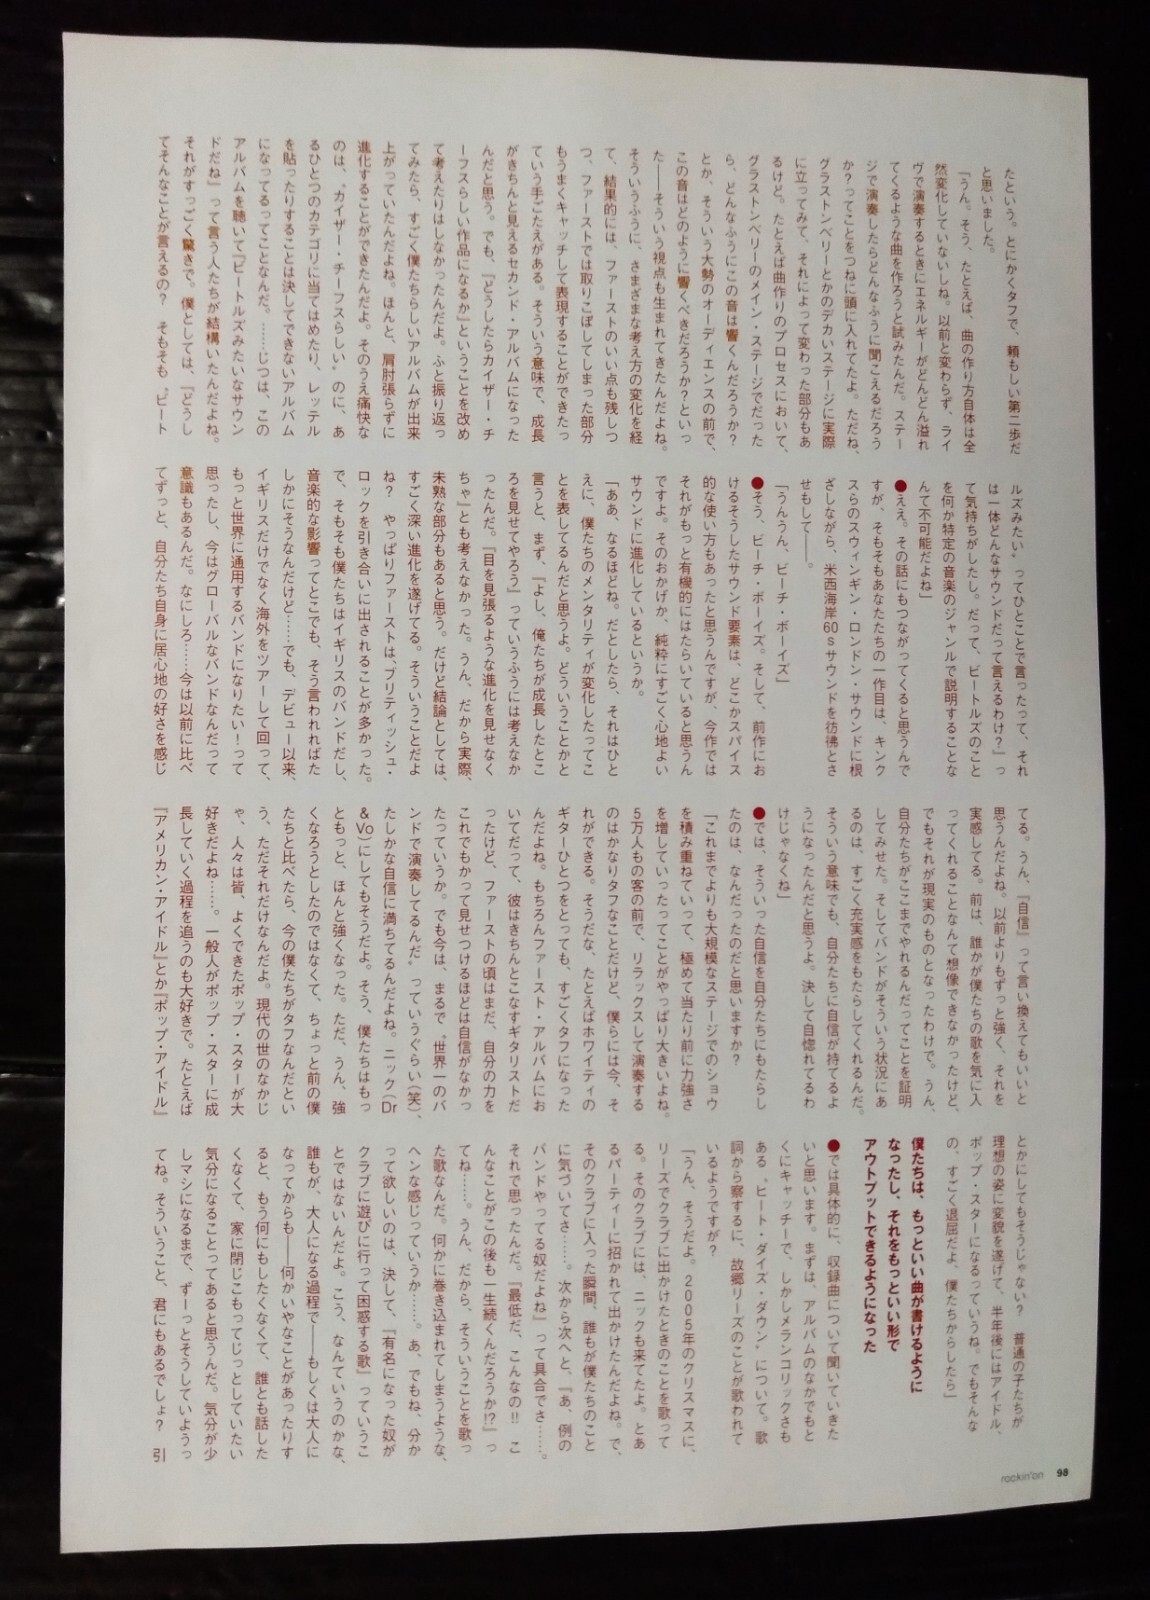 たという。とにかくタフで、頼もしい第二歩だ
と思いました。
「うん。そう、たとえば、曲の作り方自体は全
然変化していないしね。以前と変わらず、ライ
ヴで演奏するときにエネルギーがどんどん溢れ
てくるような曲を作ろうと試みたんだ。ステー
ジで演奏したらどんなふうに聞こえるだろう
か？ってことをつねに頭に入れてたよ。ただね、
グラストンベリーとかのデカいステージに実際
に立ってみて、それによって変わった部分もあ
るけど。たとえば曲作りのプロセスにおいて、
グラストンベリーのメイン・ステージでだった
ら、どんなふうにこの音は響くんだろうか？
とか、そういう大勢のオーディエンスの前で、
この音はどのように響くべきだろうか？といっ
た――そういう視点も生まれてきたんだよね。
そういうふうに、さまざまな考え方の変化を経
て、結果的には、ファーストのいい点も残しつ
つ、ファーストでは取りこぼしてしまった部分
もうまくキャッチして表現することができたっ
ていう手ごたえがある。そういう意味で、成長
がきちんと見えるセカンド・アルバムになった
んだと思う。でも、『どうしたらカイザー・チ
ーフスらしい作品になるか』ということを改め
て考えたりはしなかったんだよ。ふと振り返っ
てみたら、すごく僕たちらしいアルバムが出来
上がっていたんだよね。ほんと、肩肘張らずに
進化することができたんだよ。そのうえ痛快な
のは、“カイザー・チーフスらしい〟のに、あ
るひとつのカテゴリに当てはめたり、レッテル
を貼ったりすることは決してできないアルバム
になってるってことなんだ。……じつは、この
アルバムを聴いて『ビートルズみたいなサウン
ドだね』って言う人たちが結構いたんだよね。
それがすっごく驚きで。僕としては、『どうし
てそんなことが言えるの？　そもそも〝ビート
ルズみたい〟ってひとことで言ったって、それ
は一体どんなサウンドだって言えるわけ？』っ
て気持ちがしたし。だって、ビートルズのこと
を何か特定の音楽のジャンルで説明することな
んて不可能だよね」
●ええ。その話にもつながってくると思うんで
すが、そもそもあなたたちの一作目は、キンク
スらのスウィンギン・ロンドン・サウンドに根
ざしながら、米西海岸60sサウンドを彷彿とさ
せもして――。
「うんうん、ビーチ・ボーイズ」
●そう、ビーチ・ボーイズ。そして、前作にお
けるそうしたサウンド要素は、どこかスパイス
的な使い方もあったと思うんですが、今作では
それがもっと有機的にはたらいていると思うん
ですよ。そのおかげか、純粋にすごく心地よい
サウンドに進化しているというか。
「ああ、なるほどね。だとしたら、それはひと
えに、僕たちのメンタリティが変化したってこ
とを表してるんだと思うよ。どういうことかと
言うと、まず、『よし、俺たちが成長したとこ
ろを見せてやろう』っていうふうには考えなか
ったんだ。『目を見張るような進化を見せなく
ちゃ』とも考えなかった。うん、だから実際、
未熟な部分もあると思う。だけど結論としては、
すごく深い進化を遂げてる。そういうことだよ
ね？　やっぱりファーストは、ブリティッシュ・
ロックを引き合いに出されることが多かった。
で、そもそも僕たちはイギリスのバンドだし、
音楽的な影響ってとこでも、そう言われればた
しかにそうなんだけど……でも、デビュー以来、
イギリスだけでなく海外をツアーして回って、
もっと世界に通用するバンドになりたい！って
思ったし、今はグローバルなバンドなんだって
意識もあるんだ。なにしろ……今は以前に比べ
てずっと、自分たち自身に居心地の好さを感じ
てる。うん、『自信』って言い換えてもいいと
思うんだよね。以前よりもずっと強く、それを
実感してる。前は、誰かが僕たちの歌を気に入
ってくれることなんて想像できなかったけど、
でもそれが現実のものとなったわけで。うん、
自分たちがここまでやれるんだってことを証明
してみせた。そしてバンドがそういう状況にあ
るのは、すごく充実感をもたらしてくれるんだ。
そういう意味でも、自分たちに自信が持てるよ
うになったんだと思うよ。決して自惚れてるわ
けじゃなくね」
●では、そういった自信を自分たちにもたらし
たのは、なんだったのだと思いますか？
「これまでよりも大規模なステージでのショウ
を積み重ねていって、極めて当たり前に力強さ
を増していったってことがやっぱり大きいよね。
5万人もの客の前で、リラックスして演奏する
のはかなりタフなことだけど、僕らには今、そ
れができる。そうだな、たとえばホワイティの
ギターひとつをとっても、すごくタフになった
んだよね。もちろんファースト・アルバムにお
いてだって、彼はきちんとこなすギタリストだ
ったけど、ファーストの頃はまだ、自分の力を
これでもかって見せつけるほどは自信がなかっ
たっていうか。でも今は、まるで〝世界一のバ
ンドで演奏してるんだ〟っていうぐらい（笑）、
たしかな自信に満ちてるんだよね。ニック（Dr
&Vo）にしてもそうだよ。そう、僕たちはもっ
ともっと、ほんと強くなった。ただ、うん、強
くなろうとしたのではなくて、ちょっと前の僕
たちと比べたら、今の僕たちがタフなんだとい
う、ただそれだけなんだよ。現代の世のなかじ
ゃ、人々は皆、よくできたポップ・スターが大
好きだよね……。一般人がポップ・スターに成
長していく過程を追うのも大好きで。たとえば
『アメリカン・アイドル』とか『ポップ・アイドル』
とかにしてもそうじゃない？　普通の子たちが
理想の姿に変貌を遂げて、半年後にはアイドル、
ポップ・スターになるっていうね。でもそんな
の、すごく退屈だよ、僕たちからしたら」
僕たちは、もっといい曲が書けるように
なったし、それをもっといい形で
アウトプットできるようになった
●では具体的に、収録曲について聞いていきた
いと思います。まずは、アルバムのなかでもと
くにキャッチーで、しかしメランコリックさも
ある〝ヒート・ダイズ・ダウン〟について。歌
詞から察するに、故郷リーズのことが歌われて
いるようですが？
「うん、そうだよ。2005年のクリスマスに、
リーズでクラブに出かけたときのことを歌って
る。そのクラブには、ニックも来てたよ。とあ
るパーティーに招かれて出かけたんだよね。で、
そのクラブに入った瞬間、誰もが僕たちのこと
に気づいてさ……。次から次へと、『あ、例の
バンドやってる奴だよね』って具合でさ……。
それで思ったんだ。『最低だ、こんなの!!　こ
んなことがこの後も一生続くんだろうか!?』っ
てね……。うん、だから、そういうことを歌っ
た歌なんだ。何かに巻き込まれてしまうような、
ヘンな感じっていうか……。あ、でもね、分か
って欲しいのは、決して、『有名になった奴が
クラブに遊びに行って困惑する歌』っていうこ
とではないんだよ。こう、なんていうのかな、
誰もが、大人になる過程で――もしくは大人に
なってからも――何かいやなことがあったりす
ると、もう何にもしたくなくて、誰とも話した
くなくて、家に閉じこもってじっとしていたい
気分になることってあると思うんだ。気分が少
しマシになるまで、ずーっとそうしていようっ
てね。そういうこと、君にもあるでしょ？　引
rockin'on 98